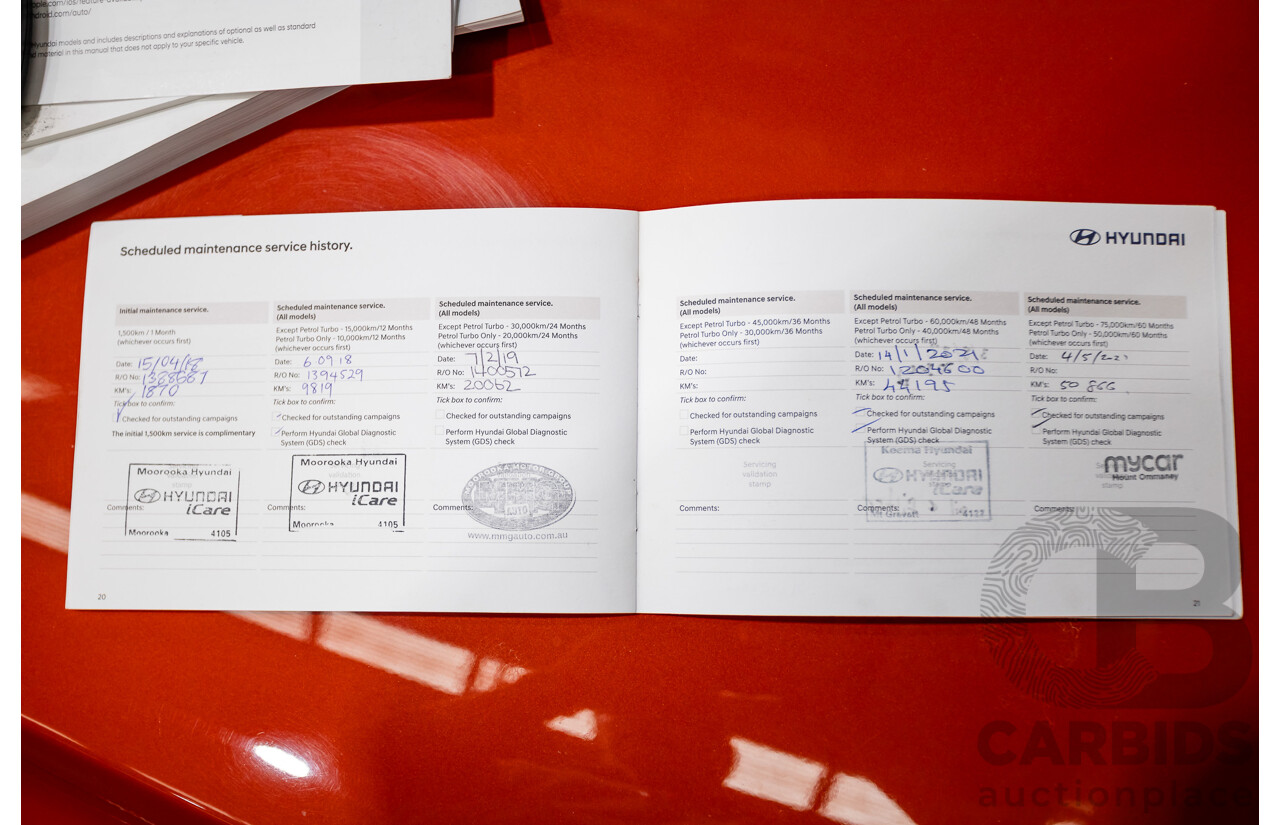 ndroid.com/auto/
Hyundai models and includes descriptions and explanations of optional as well as standard
material in this manual that does not apply to your specific vehicle.
Scheduled maintenance service history.
HYUNDAI
Initial maintenance service.
1,500km / 1 Month
(whichever occurs first)
Date: 15/04/18
R/O No: 1368667
KM's: 1870
Tick box to confirm:
Checked for outstanding campaigns
The initial 1,500km service is complimentary
Moorooka Hyundai
HYUNDAI
iCare
Comments:
Moorooka 4105
Scheduled maintenance service.
(All models)
Except Petrol Turbo - 15,000km/12 Months
Petrol Turbo Only - 10,000km/12 Months
(whichever occurs first)
Date: 6 09 18
R/O No: 1394529
KM's: 9819
Tick box to confirm:
Checked for outstanding campaigns
Perform Hyundai Global Diagnostic
System (GDS) check
Moorooka Hyundai
HYUNDAI
iCare
Comments:
Moorooka 4105
Scheduled maintenance service.
(All models)
Except Petrol Turbo - 30,000km/24 Months
Petrol Turbo Only - 20,000km/24 Months
(whichever occurs first)
Date: 7/2/19
R/O No: 1400572
KM's: 20062
Tick box to confirm:
Checked for outstanding campaigns
Perform Hyundai Global Diagnostic
System (GDS) check
MOOROOKA MOTOR GROUP
Comments:
www.mmgauto.com.au
20
Scheduled maintenance service.
(All models)
Except Petrol Turbo - 45,000km/36 Months
Petrol Turbo Only - 30,000km/36 Months
(whichever occurs first)
Date:
R/O No:
KM's:
Tick box to confirm:
Checked for outstanding campaigns
Perform Hyundai Global Diagnostic
System (GDS) check
Servicing
validation
stamp
Comments:
Scheduled maintenance service.
(All models)
Except Petrol Turbo - 60,000km/48 Months
Petrol Turbo Only - 40,000km/48 Months
(whichever occurs first)
Date: 14/1/2021
R/O No: 1204600
KM's: 44195
Tick box to confirm:
Checked for outstanding campaigns
Perform Hyundai Global Diagnostic
System (GDS) check
Keema Hyundai
Servicing
HYUNDAI
stamp
iCare
Comments:
Mt Gravatt 4122
Scheduled maintenance service.
(All models)
Except Petrol Turbo - 75,000km/60 Months
Petrol Turbo Only - 50,000km/60 Months
(whichever occurs first)
Date: 4/5/22
R/O No:
KM's: 50 866
Tick box to confirm:
Checked for outstanding campaigns
Perform Hyundai Global Diagnostic
System (GDS) check
mycar
Mount Ommaney
stamp
Comments:
21
CARBIDS
auctionplace